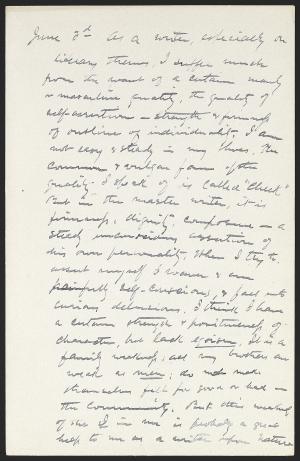 June 3d As a writer, especially on
literary themes, I suffer much
from the want of a certain manly
or masculine quality, the quality of
self-assertion — strength & firmness
of outline of individuality. I am
not easy & steady in my shoes. The
common & vulgar form of the
quality I speak of is called "Cheek"
But in the master writer, it is
firmness, dignity, composure — a
steady unconscious assertion of
his own personality. When I try to
assert myself I waver & am
painfully self-conscious, & fall into
curious delusions. I think I have
a certain strength & positiveness of
character, but lack egoism. It is a
family weakness; all my brothers are
weak as men; do not make
themselves felt for good or bad in
the community. But this weakness
of the I in me is probably a great
help to me as a writer upon Nature